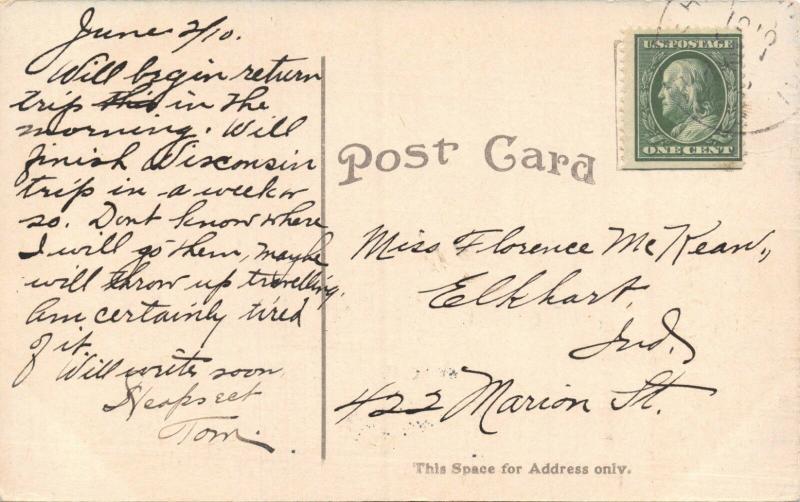 June 2/10.
Will begin return
trip this in the
morning. Will
finish Wisconsin
trip in a week or
so. Dont know where
I will go then, maybe
will throw up travelling.
Am certainly tired
of it.
Will write soon
Heaps ect
Tom.
U.S. POSTAGE
ONE CENT
Post Card
Miss Florence McKean,
Elkhart,
Ind,
422 Marion St.
This Space for Address only.